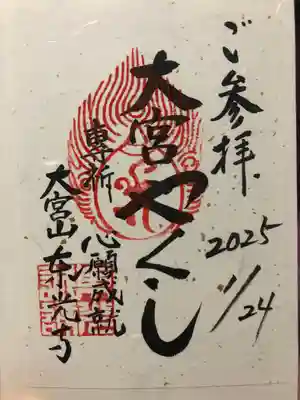 ご参拝
2025
1/24
大宮やくし
専祈 心願成就
大宮山東光寺